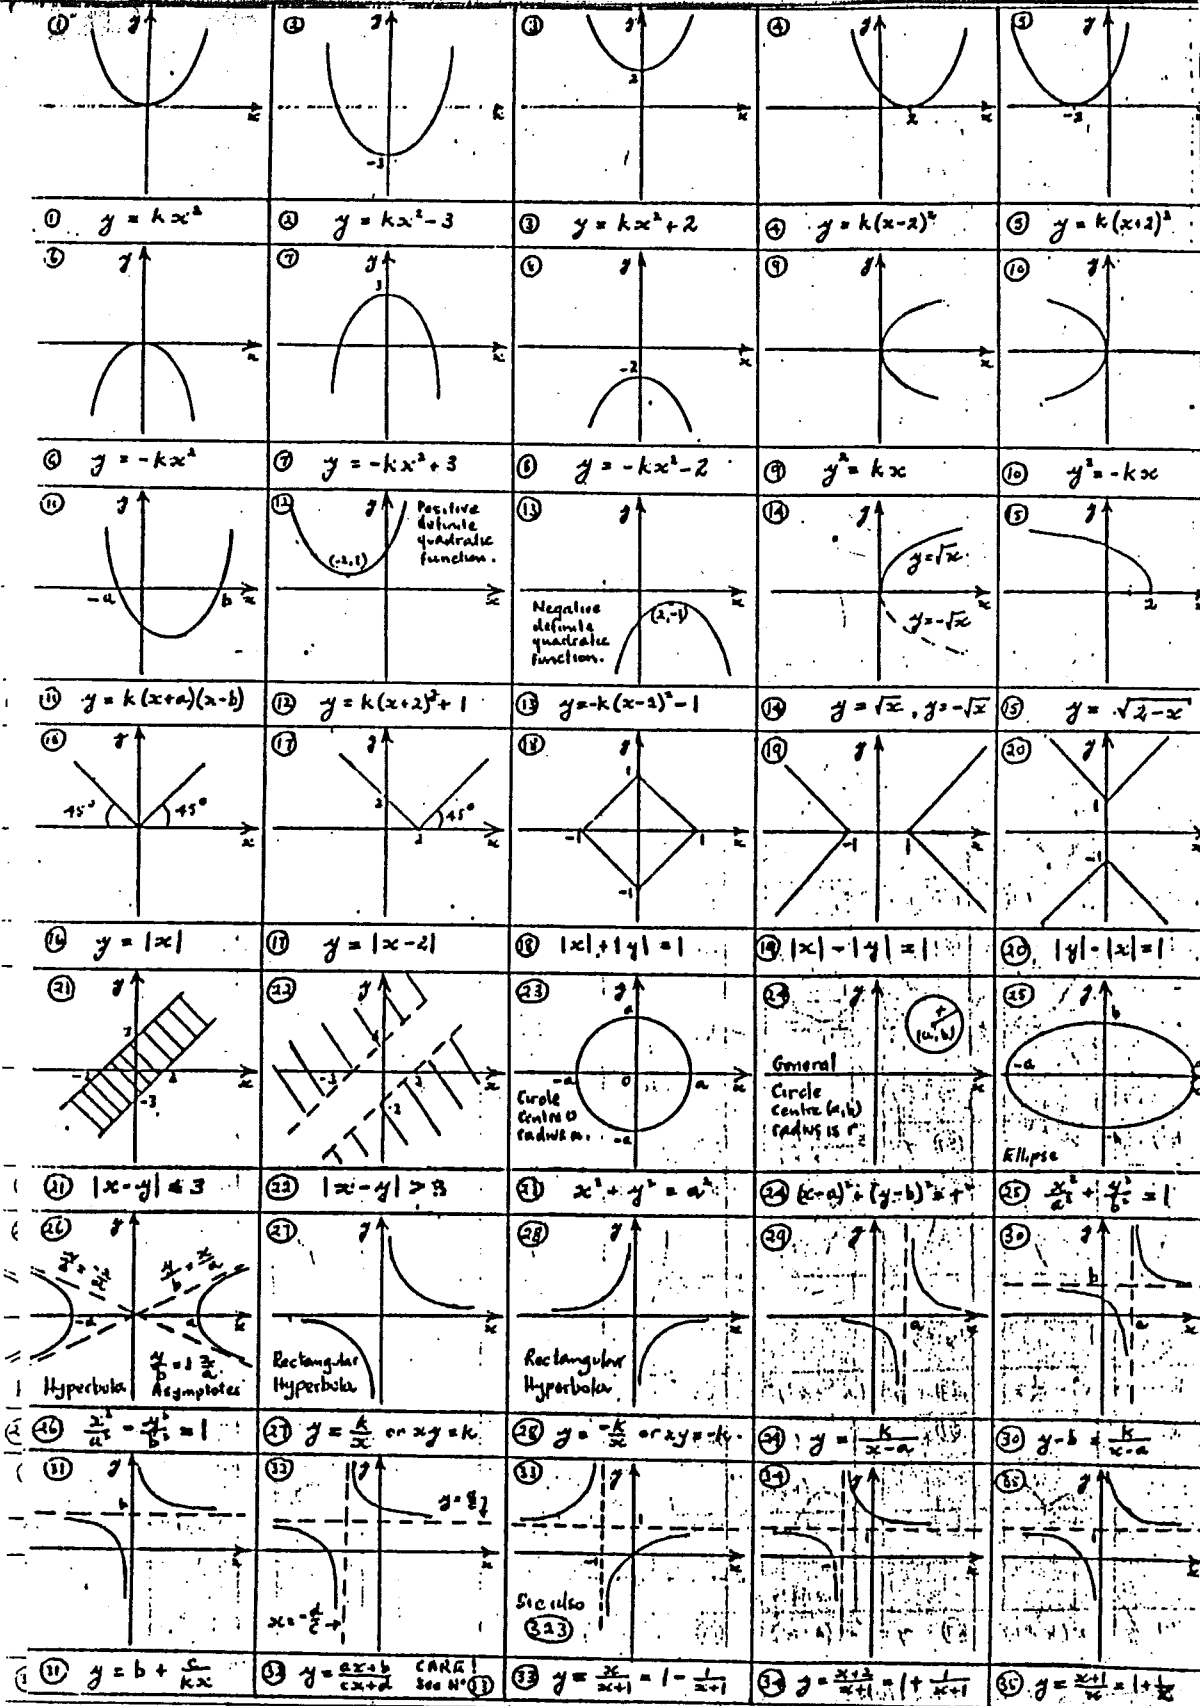 ① y x
② y x -3
③ y x 2
④ y x 2
⑤ y x -2
① y = kx²
② y = kx² - 3
③ y = kx² + 2
④ y = k(x-2)²
⑤ y = k(x+2)²
⑥ y x
⑦ y x 3
⑧ y x -2
⑨ y x
⑩ y
⑥ y = -kx²
⑦ y = -kx² + 3
⑧ y = -kx² - 2
⑨ y² = kx
⑩ y² = -kx
⑪ y x -a b
⑫ y x (-2,1)
Positive
definite
quadratic
function.
⑬ y x (2,-1)
Negative
definite
quadratic
function.
⑭ y x y=√x y=-√x
⑮ y 2
⑪ y = k(x+a)(x-b)
⑫ y = k(x+2)² + 1
⑬ y=-k(x-2)² - 1
⑭ y = √x , y=-√x
⑮ y = √2-x
⑯ y x 45° 45°
⑰ y x 2 2 45°
⑱ y x 1 -1 1 -1
⑲ y x -1 1
⑳ y x 1 -1
⑯ y = |x|
⑰ y = |x-2|
⑱ |x|+|y| = 1
⑲ |x| - |y| = 1
⑳ |y| - |x| = 1
㉑ y x -3
㉒ y x
㉓ y x a -a 0 a -a
Circle
centre O
radius a.
㉔ y x r (a,b)
General
Circle
centre (a,b)
radius is r
㉕ y b -a -b
Ellipse
㉑ |x-y| ≤ 3
㉒ |x-y| > 3
㉓ x² + y² = a²
㉔ (x-a)² + (y-b)² = r²
㉕ x²/a² + y²/b² = 1
㉖ y x -a a y/b = x/a
Hyperbola Asymptotes
㉗ y x
Rectangular
Hyperbola
㉘ y x
Rectangular
Hyperbola
㉙ y x a
㉚ y b a
㉖ x²/a² - y²/b² = 1
㉗ y = k/x or xy = k
㉘ y = -k/x or xy = -k
㉙ y = k/x-a
㉚ y-b = k/x-a
㉛ y x b
㉜ y x x = -d/c
㉝ y x 1 -1
See also
323
㉞ y x
㉟ y x 1
㉛ y = b + c/kx
㉜ y = ax+b/cx+d CARE! See Nº 33
㉝ y = x/x+1 = 1 - 1/x+1
㉞ y = x+2/x+1 = 1 + 1/x+1
㉟ y = x+1/x = 1 + 1/x